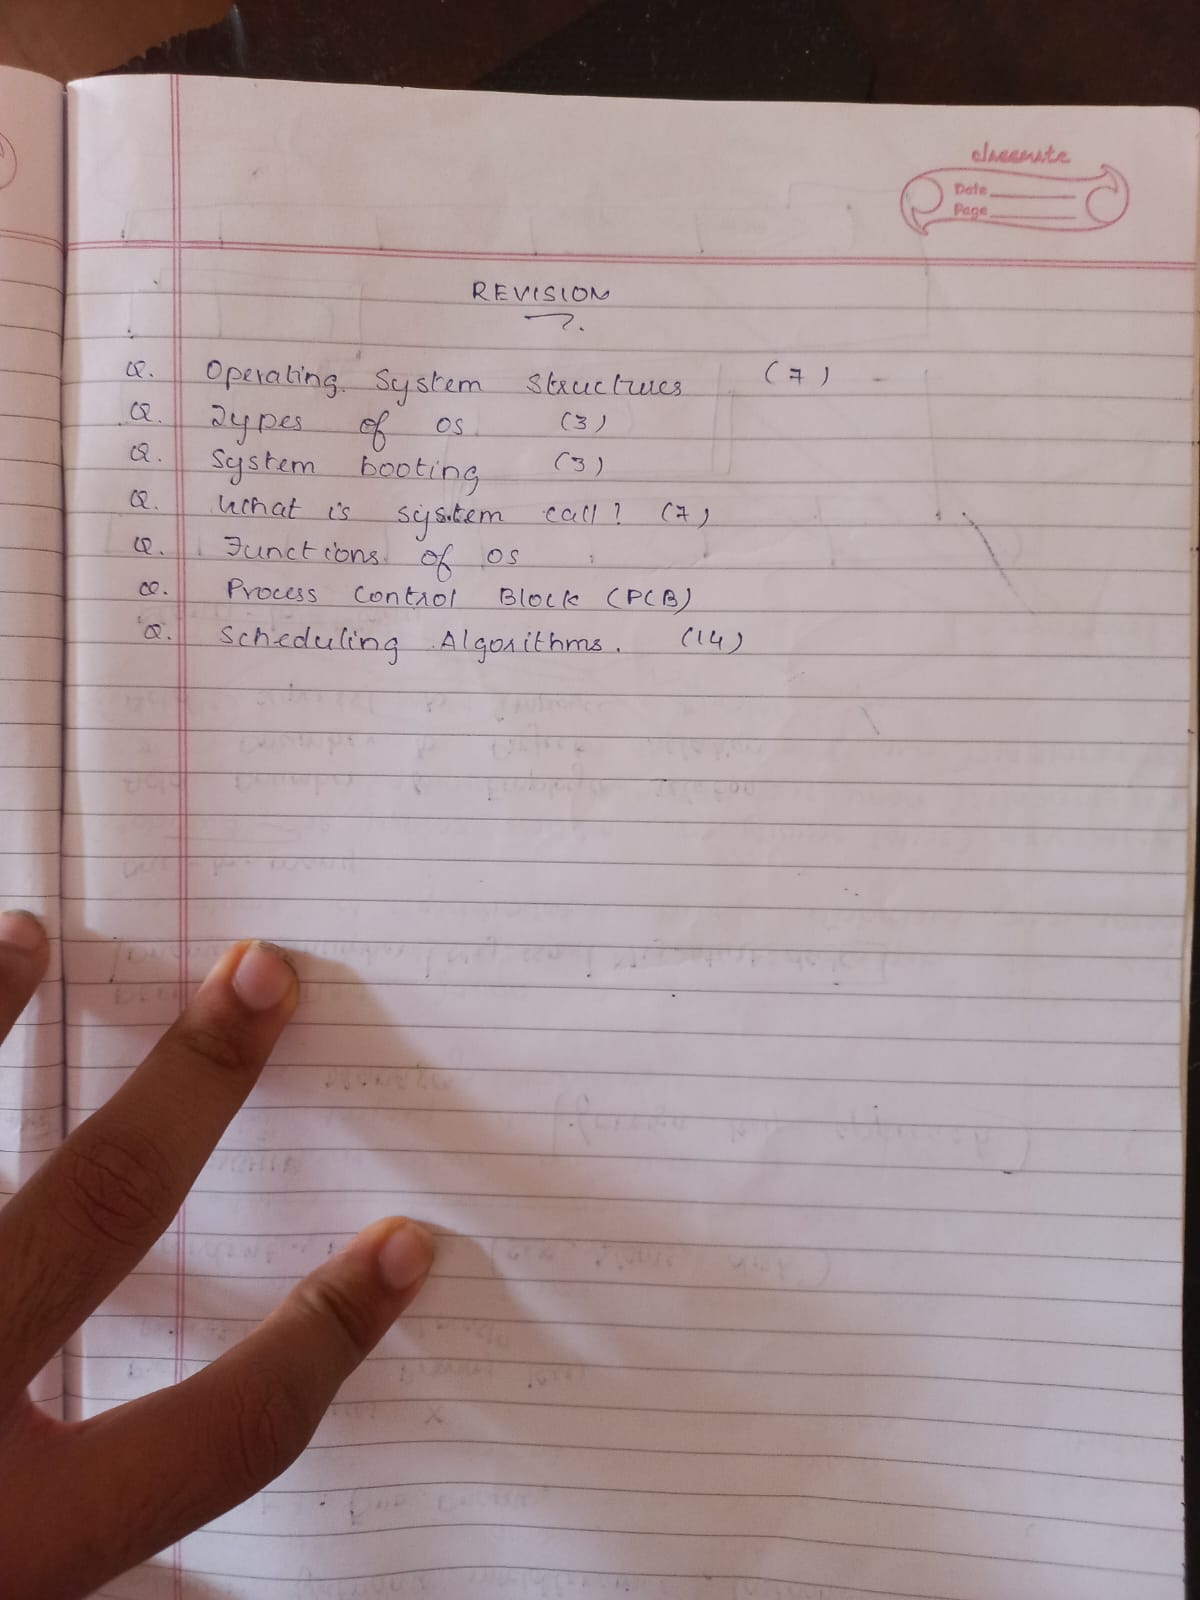 classmate
Date
Page
REVISION
Q. Operating System Structrues (7)
Q. Types of OS (3)
Q. System booting (3)
Q. What is system call? (7)
Q. Functions of OS
Q. Process Control Block (PCB)
Q. Scheduling Algorithms. (14)